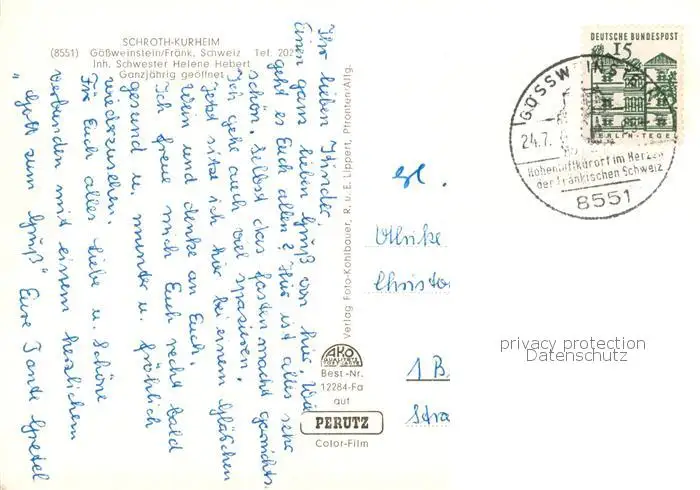 SCHROTH-KURHEIM
(8551) Gößweinstein/Fränk. Schweiz Tel. 202
Inh. Schwester Helene Hebert
Ganzjährig geöffnet
Ihr lieben Kinder,
Einen ganz lieben Gruß von hier. Wie
geht es Euch allen? Hier ist alles sehr
schön. Selbst das Fasten macht garnichts.
Ich geh auch viel spazieren.
Jetzt sitze ich hier bei einem Gläschen
Wein und denke an Euch.
Ich freue mich Euch recht bald
gesund u. munter u. fröhlich
wiederzusehen.
Für Euch alles Liebe u. Schöne
verbunden mit einem herzlichen
"Gott zum Gruß" Eure Tante Gretel
Verlag Foto-Kohlbauer, R. u. E. Lippert, Pfronten/Allg.
AKO
QUALITÄTS
Best.-Nr.
12284-Fa
auf
PERUTZ
Color-Film
DEUTSCHE BUNDESPOST
15
BERLIN-TEGEL
GÖSSWEINSTEIN
24.7.
Höhenluftkurort im Herzen
der Fränkischen Schweiz
8551
Ulrike
Christo
1 B
Stra
privacy protection
Datenschutz